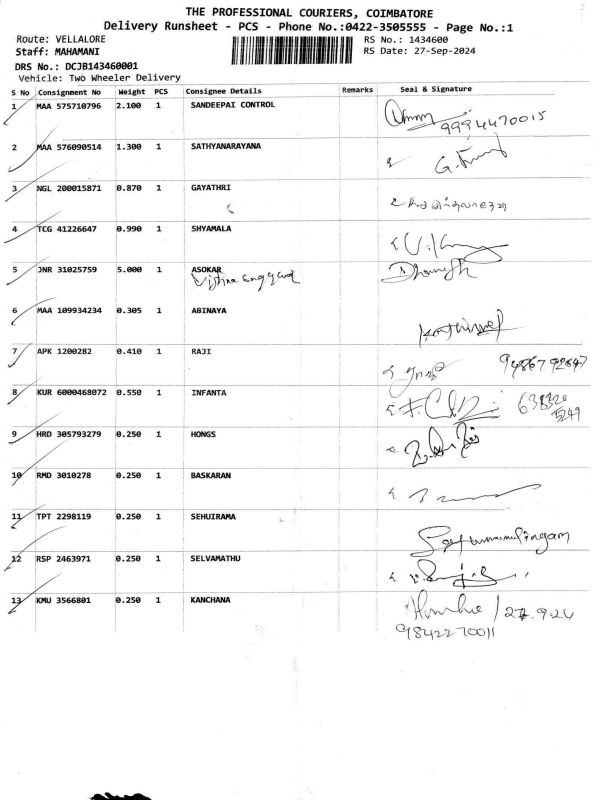 THE PROFESSIONAL COURIERS, COIMBATORE
Delivery Runsheet - PCS - Phone No.:0422-3505555 - Page No.:1
Route: VELLALORE RS No.: 1434600
Staff: MAHAMANI RS Date: 27-Sep-2024
DRS No.: DCJB143460001
Vehicle: Two Wheeler Delivery
S No Consignment No Weight PCS Consignee Details Remarks Seal & Signature
1 MAA 575710796 2.100 1 SANDEEPAI CONTROL
9994470015
2 MAA 576090514 1.300 1 SATHYANARAYANA
3 NGL 200015871 0.870 1 GAYATHRI
4 TCG 41226647 0.990 1 SHYAMALA
5 JNR 31025759 5.000 1 ASOKAR Dhanush
6 MAA 109934234 0.305 1 ABINAYA
7 APK 1200282 0.410 1 RAJI 9486792647
8 KUR 6000468072 0.550 1 INFANTA 638320
5249
9 HRD 305793279 0.250 1 HONGS
10 RMD 3010278 0.250 1 BASKARAN
11 TPT 2298119 0.250 1 SEHUIRAMA
12 RSP 2463971 0.250 1 SELVAMATHU
13 KMU 3566801 0.250 1 KANCHANA 27.9.24
9842270011